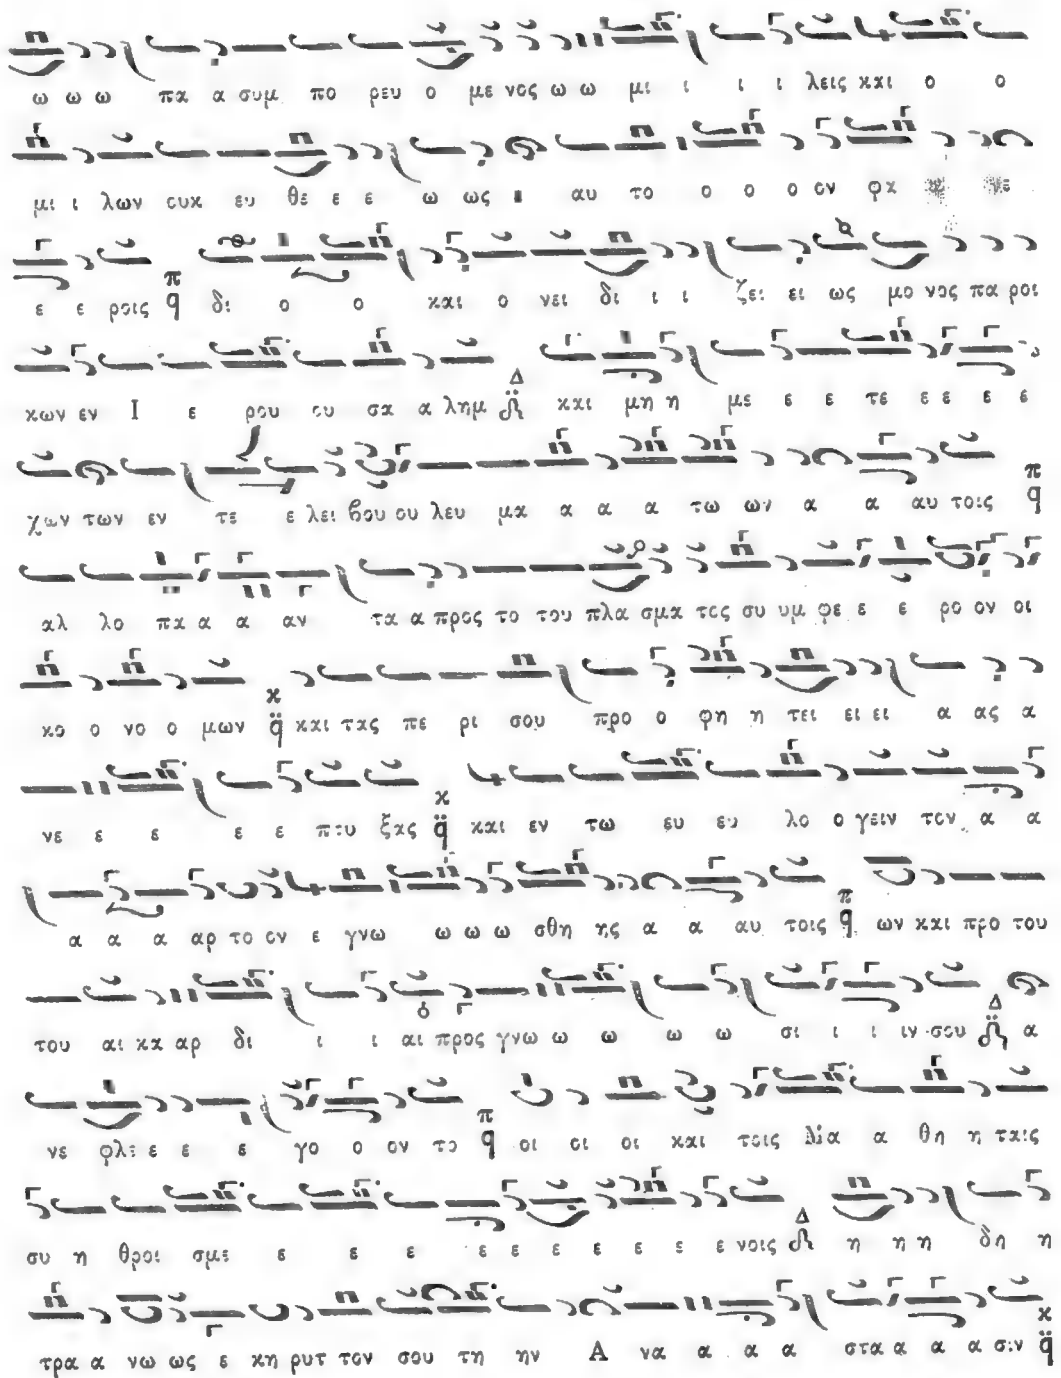 ω ω ω πα α συμ πο ρευ ο με νος ω ω μι ι ι ι λεις και ο ο
μι ι λων ουκ ευ θε ε ε ω ως αυ το ο ο ο ον φα νε
ε ε ροις π q δι ο ο και ο νει δι ι ι ζει ει ως μο νος πα ροι
κων εν Ι ε ρου ου σα α λημ Δ και μη η με ε ε τε ε ε ε ε
χων των εν τε ε λει βου ου λευ μα α α α τω ων α α αυ τοις π q
αλ λο πα α α αν τα α προς το του πλα σμα τος συ υμ φε ε ε ρο ον οι
κο ο νο ο μων κ q και τας πε ρι σου προ ο φη η τει ει ει α ας α
νε ε ε ε ε πτυ ξας κ q και εν τω ευ ευ λο ο γειν τον α α
α α α αρ το ον ε γνω ω ω ω σθη ης α α αυ τοις π q ων και προ του
του αι κα αρ δι ι ι αι προς γνω ω ω ω ω σι ι ι ιν σου Δ α
νε φλε ε ε ε γο ο ον το π q οι οι οι και τοις Μα α θη η ταις
συ η θροι σμε ε ε ε ε ε ε ε ε ε ε νοις Δ η η η δη η
τρα α νω ως ε κη ρυτ τον σου τη ην Α να α α α στα α α α σιν κ q